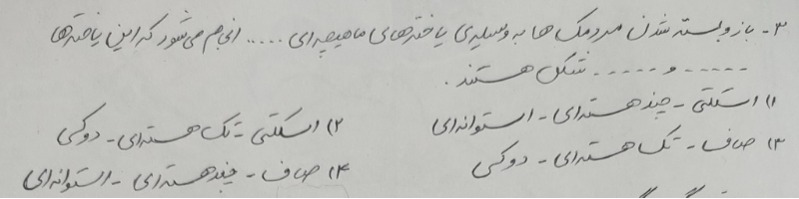 ۳- باز و بسته شدن مردمک ها به وسیله‌ی یاخته‌های ماهیچه‌ای ..... انجام می‌شود که این یاخته‌ها
..... و ..... شکل هستند.
۱) اسکلتی - چند هسته‌ای - استوانه‌ای ۲) اسکلتی - تک هسته‌ای - دوکی
۳) صاف - تک هسته‌ای - دوکی ۴) صاف - چند هسته‌ای - استوانه‌ای